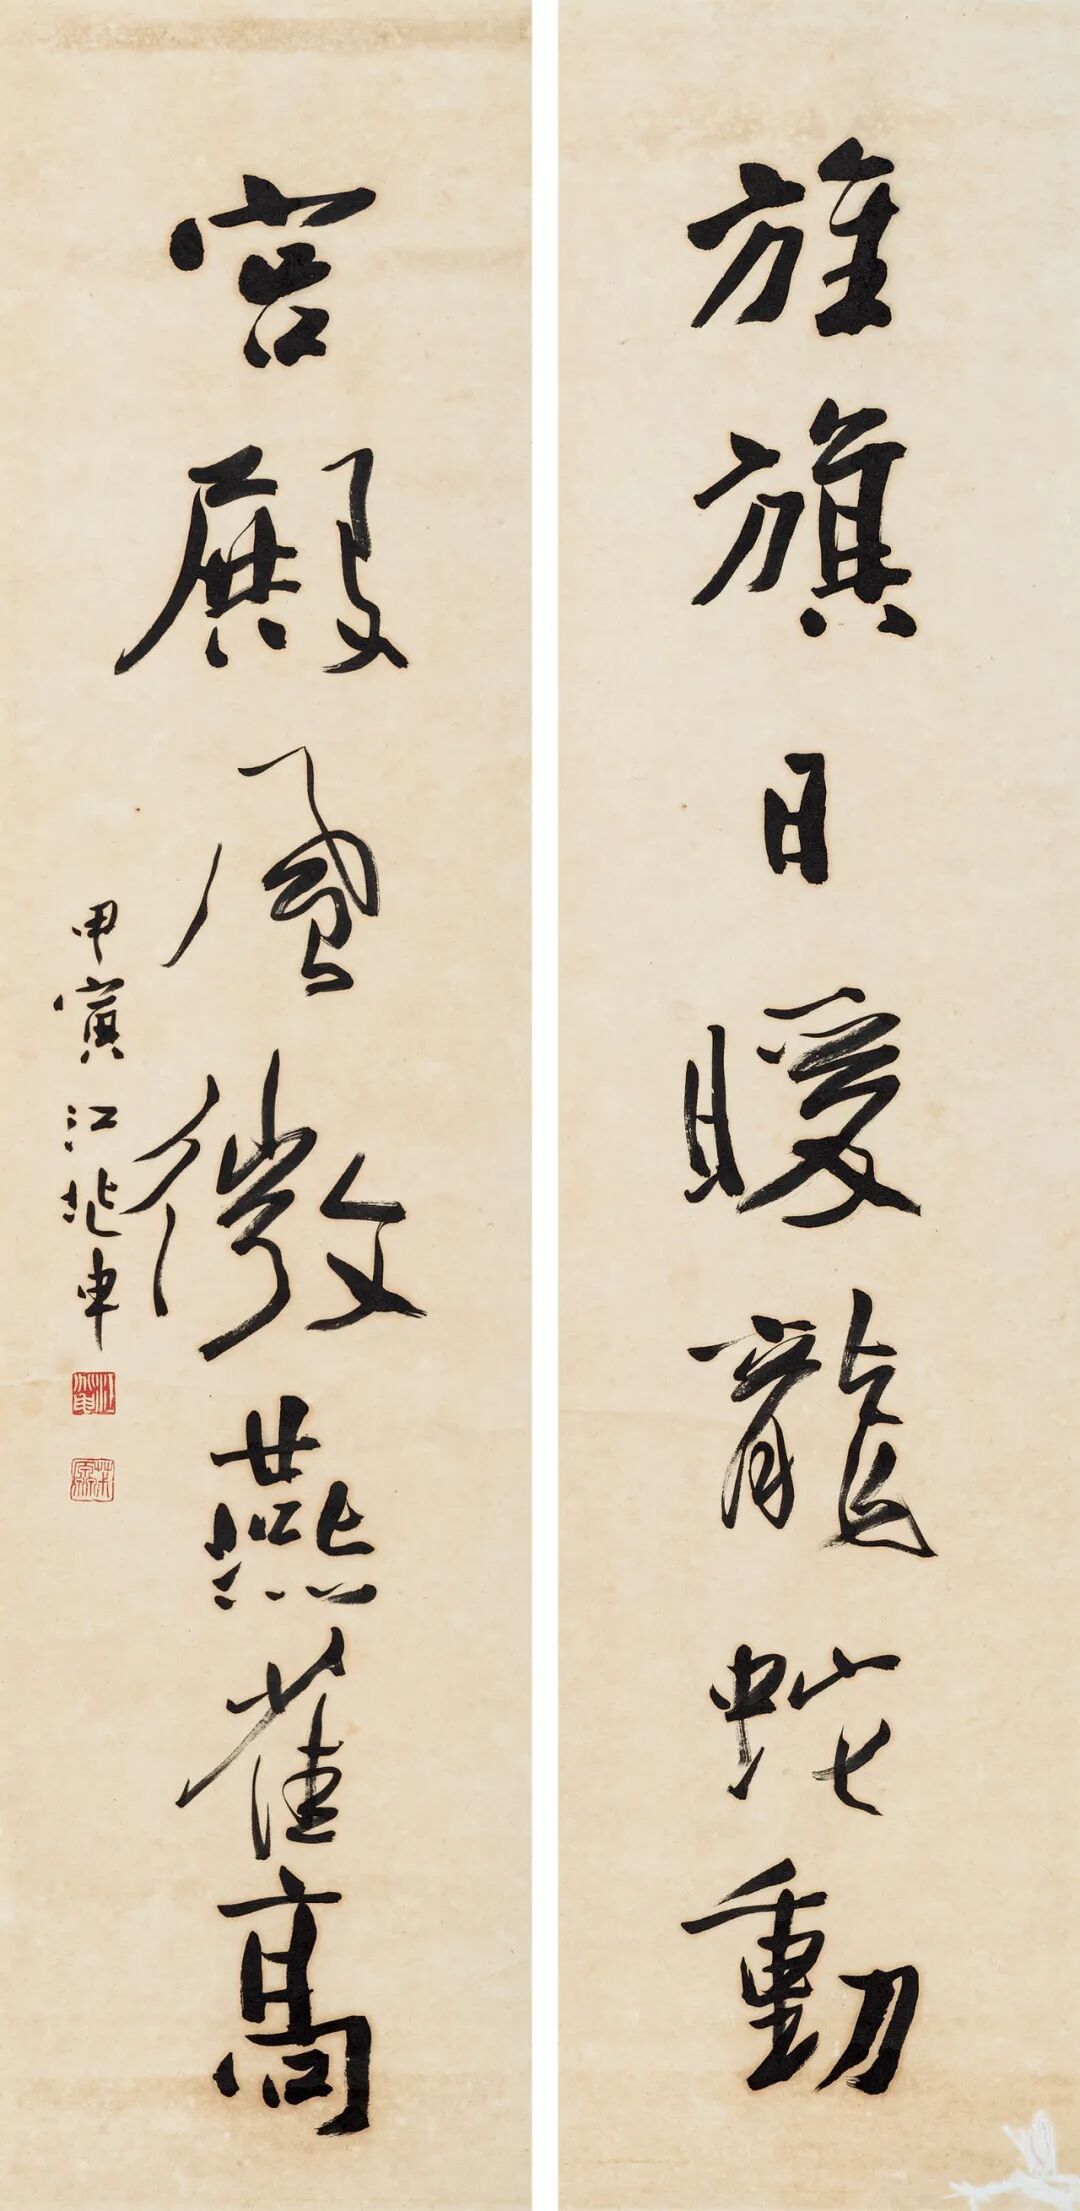 旌旗日暖龍蛇動
宮殿風微燕雀高
甲寅江兆申